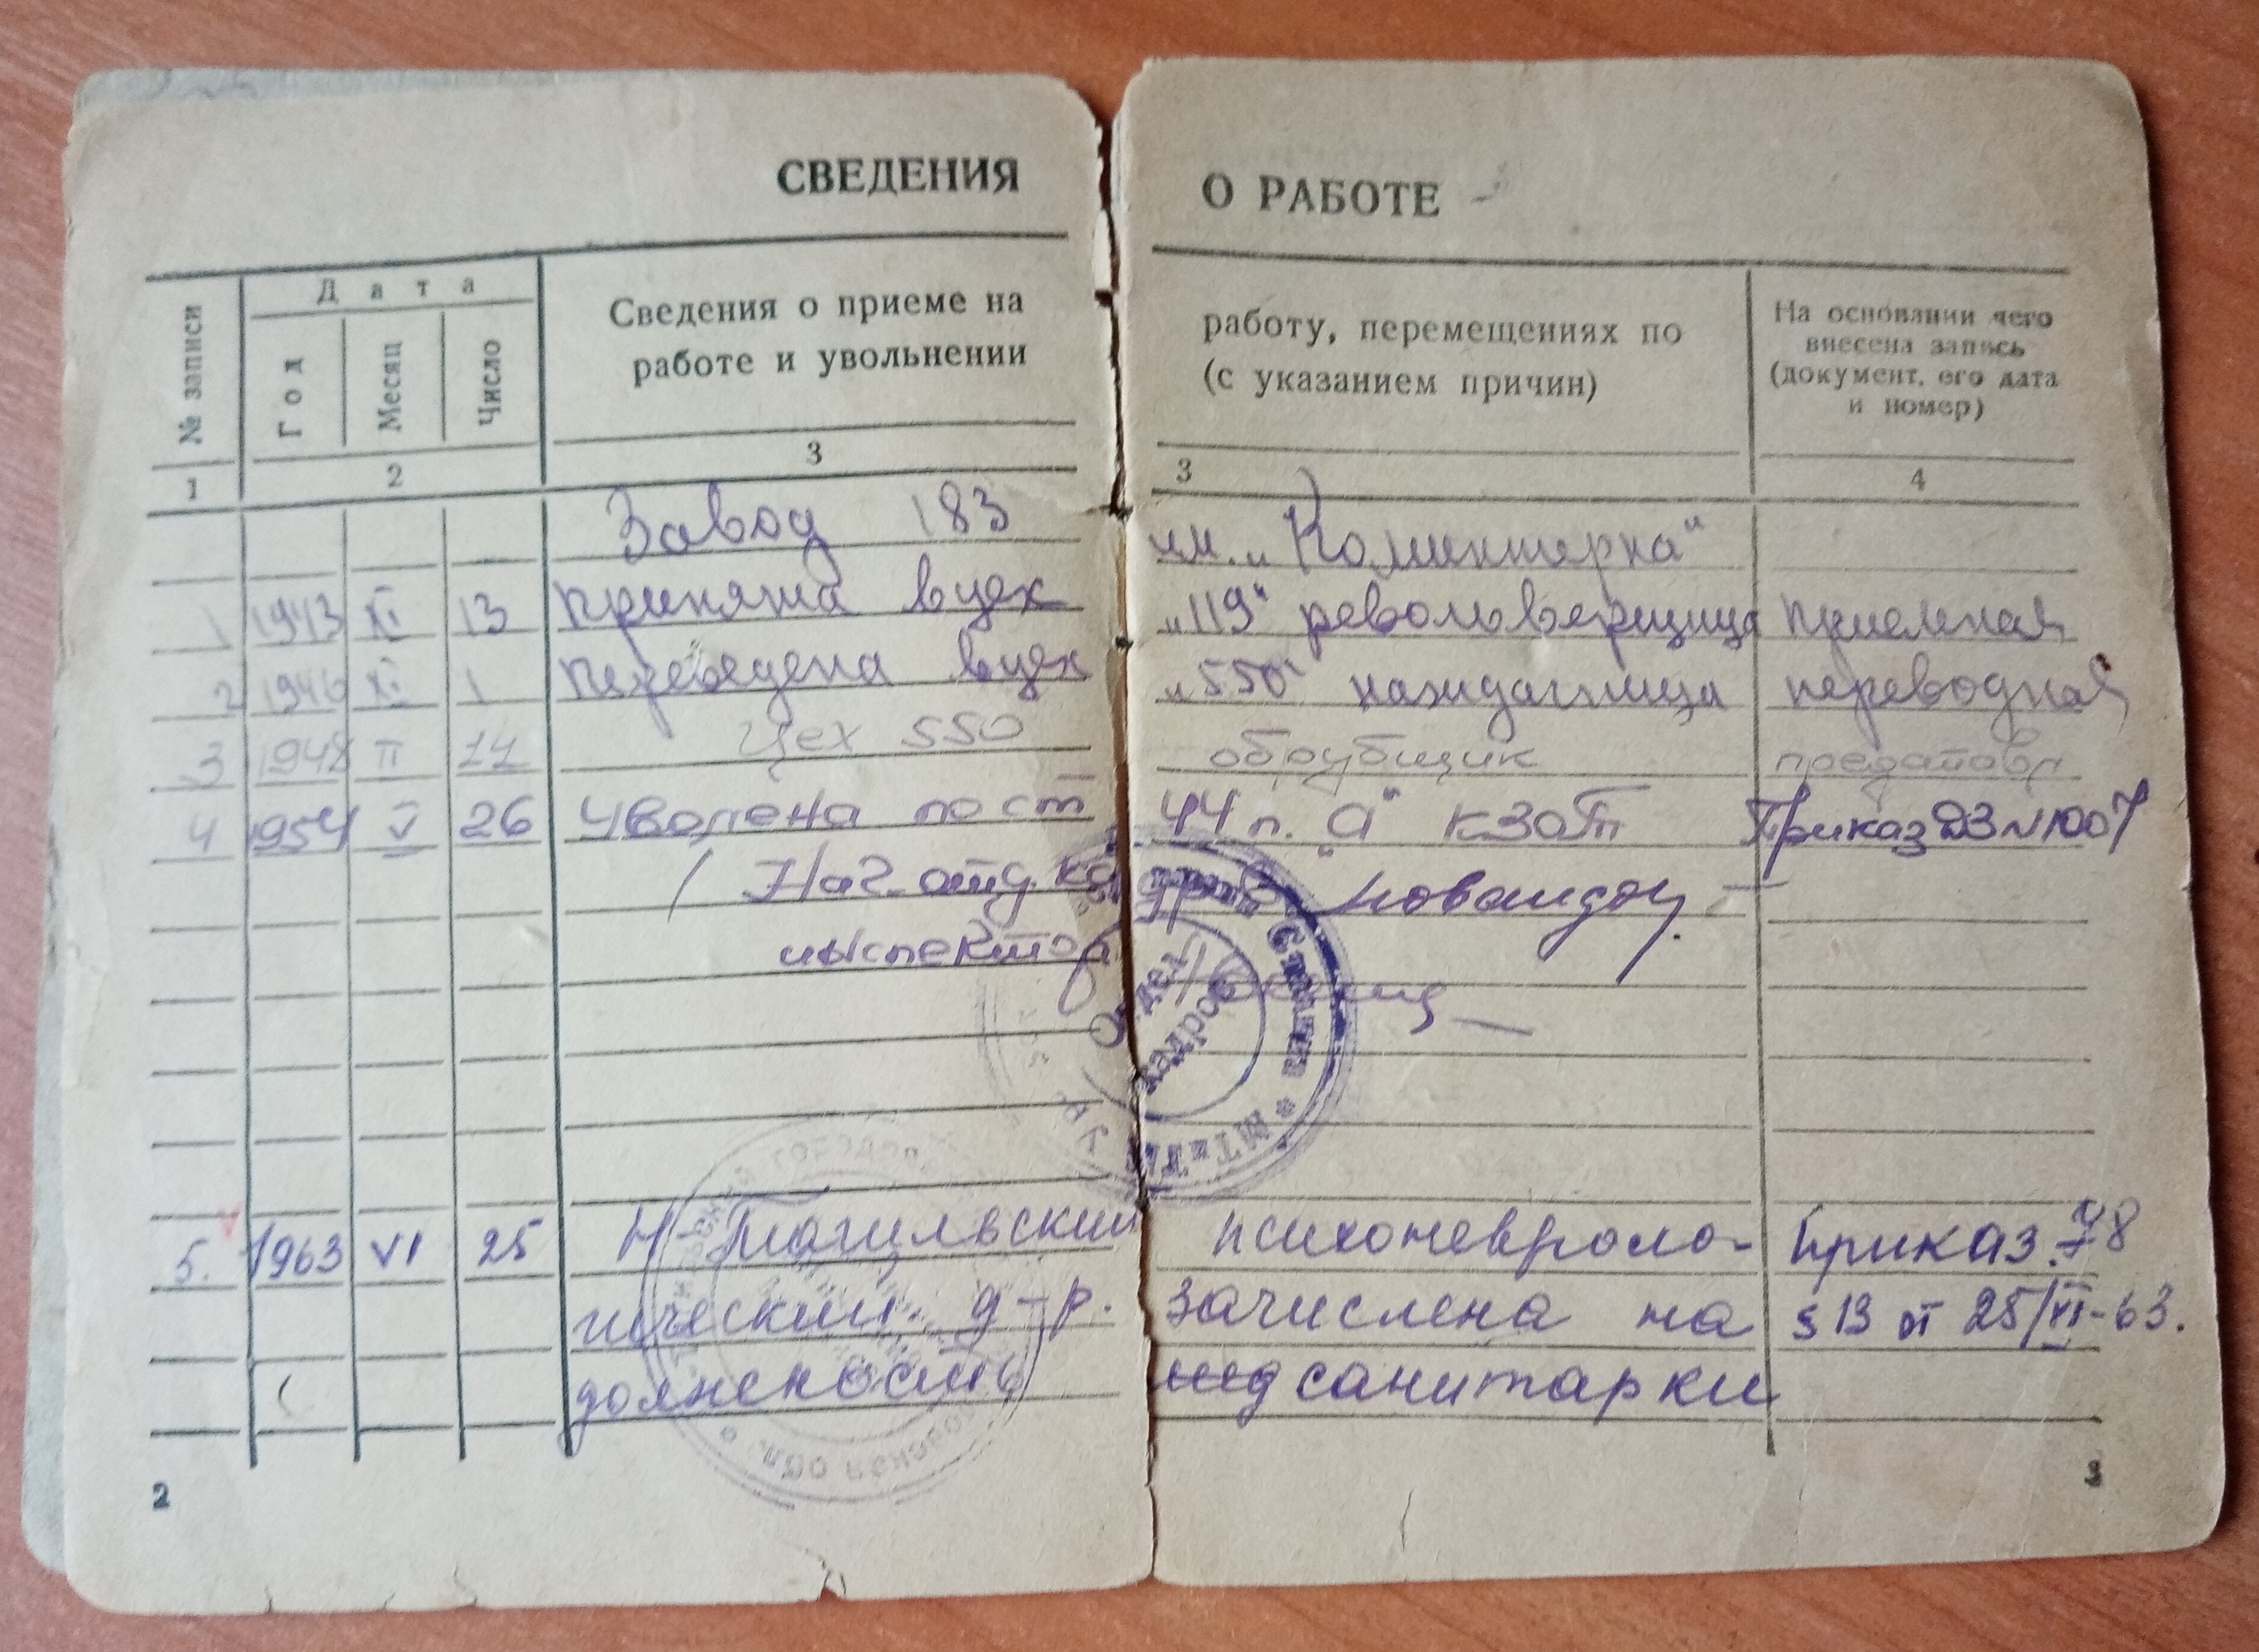 СВЕДЕНИЯ О РАБОТЕ
№ записи
Дата
Год
Месяц
Число
Сведения о приеме на работу, перемещениях по
работе и увольнении (с указанием причин)
На основании чего
внесена запись
(документ, его дата
и номер)
1 2 3 3 4
Завод 183 им. „Коминтерна“
1 1943 XI 13 принята в цех „119“ револьверщица приемная
2 1946 XI 1 переведена в цех „550“ наждачница переводная
3 1948 II Цех 550 обрубщик
4 1954 V 26 Уволена по ст 44 п. „а“ КЗоТ Приказ ДЗ №1007
(Нач. отд. кадров
инспектор
Отдел
кадров
Сталина * МТ и ТМ
5. 1963 VI 25 Н-Тагильский психоневроло- Приказ. 78
гический д-р. зачислена на § 13 от 25/VI-63.
должность медсанитарки
ская обл.
2
3